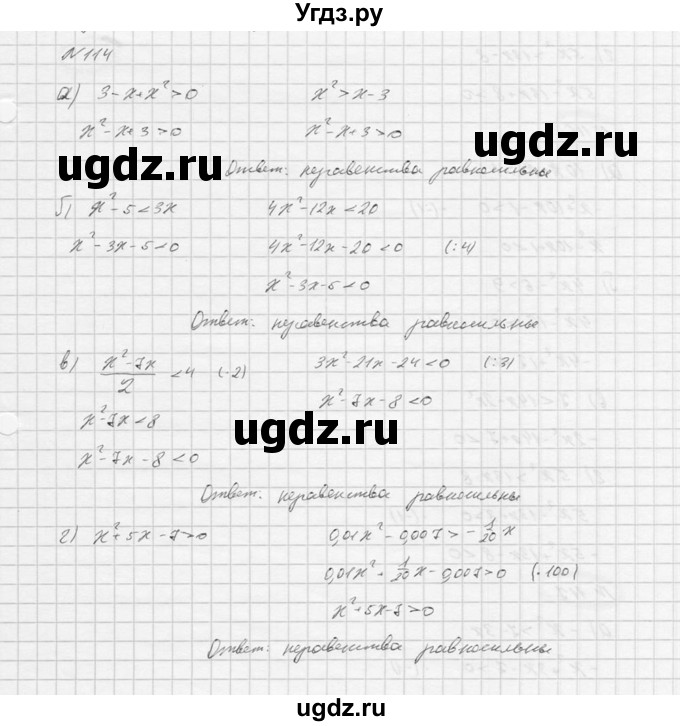 Угдз.ру
N114
а) 3-x+x²>0    x²>x-3
x²-x+3>0    x²-x+3>0
ugdz.ru    ugdz.ru
Ответ: неравенства равносильны
б) x²-5<3x    4x²-12x<20
x²-3x-5<0    4x²-12x-20<0    (:4)
x²-3x-5<0
Ответ: неравенства равносильны
в) (x²-7x)/2 <4    (·2)    3x²-21x-24<0    (:3)
x²-7x<8    x²-7x-8<0
ugdz.ru    ugdz.ru
x²-7x-8<0
Ответ: неравенства равносильны
г) x²+5x-7>0    0,01x²-0,007>-1/20 x
0,01x²+1/20 x-0,007>0    (·100)
x²+5x-7>0
Ответ: неравенства равносильны
ugdz.ru    ugdz.ru
ugdz.ru